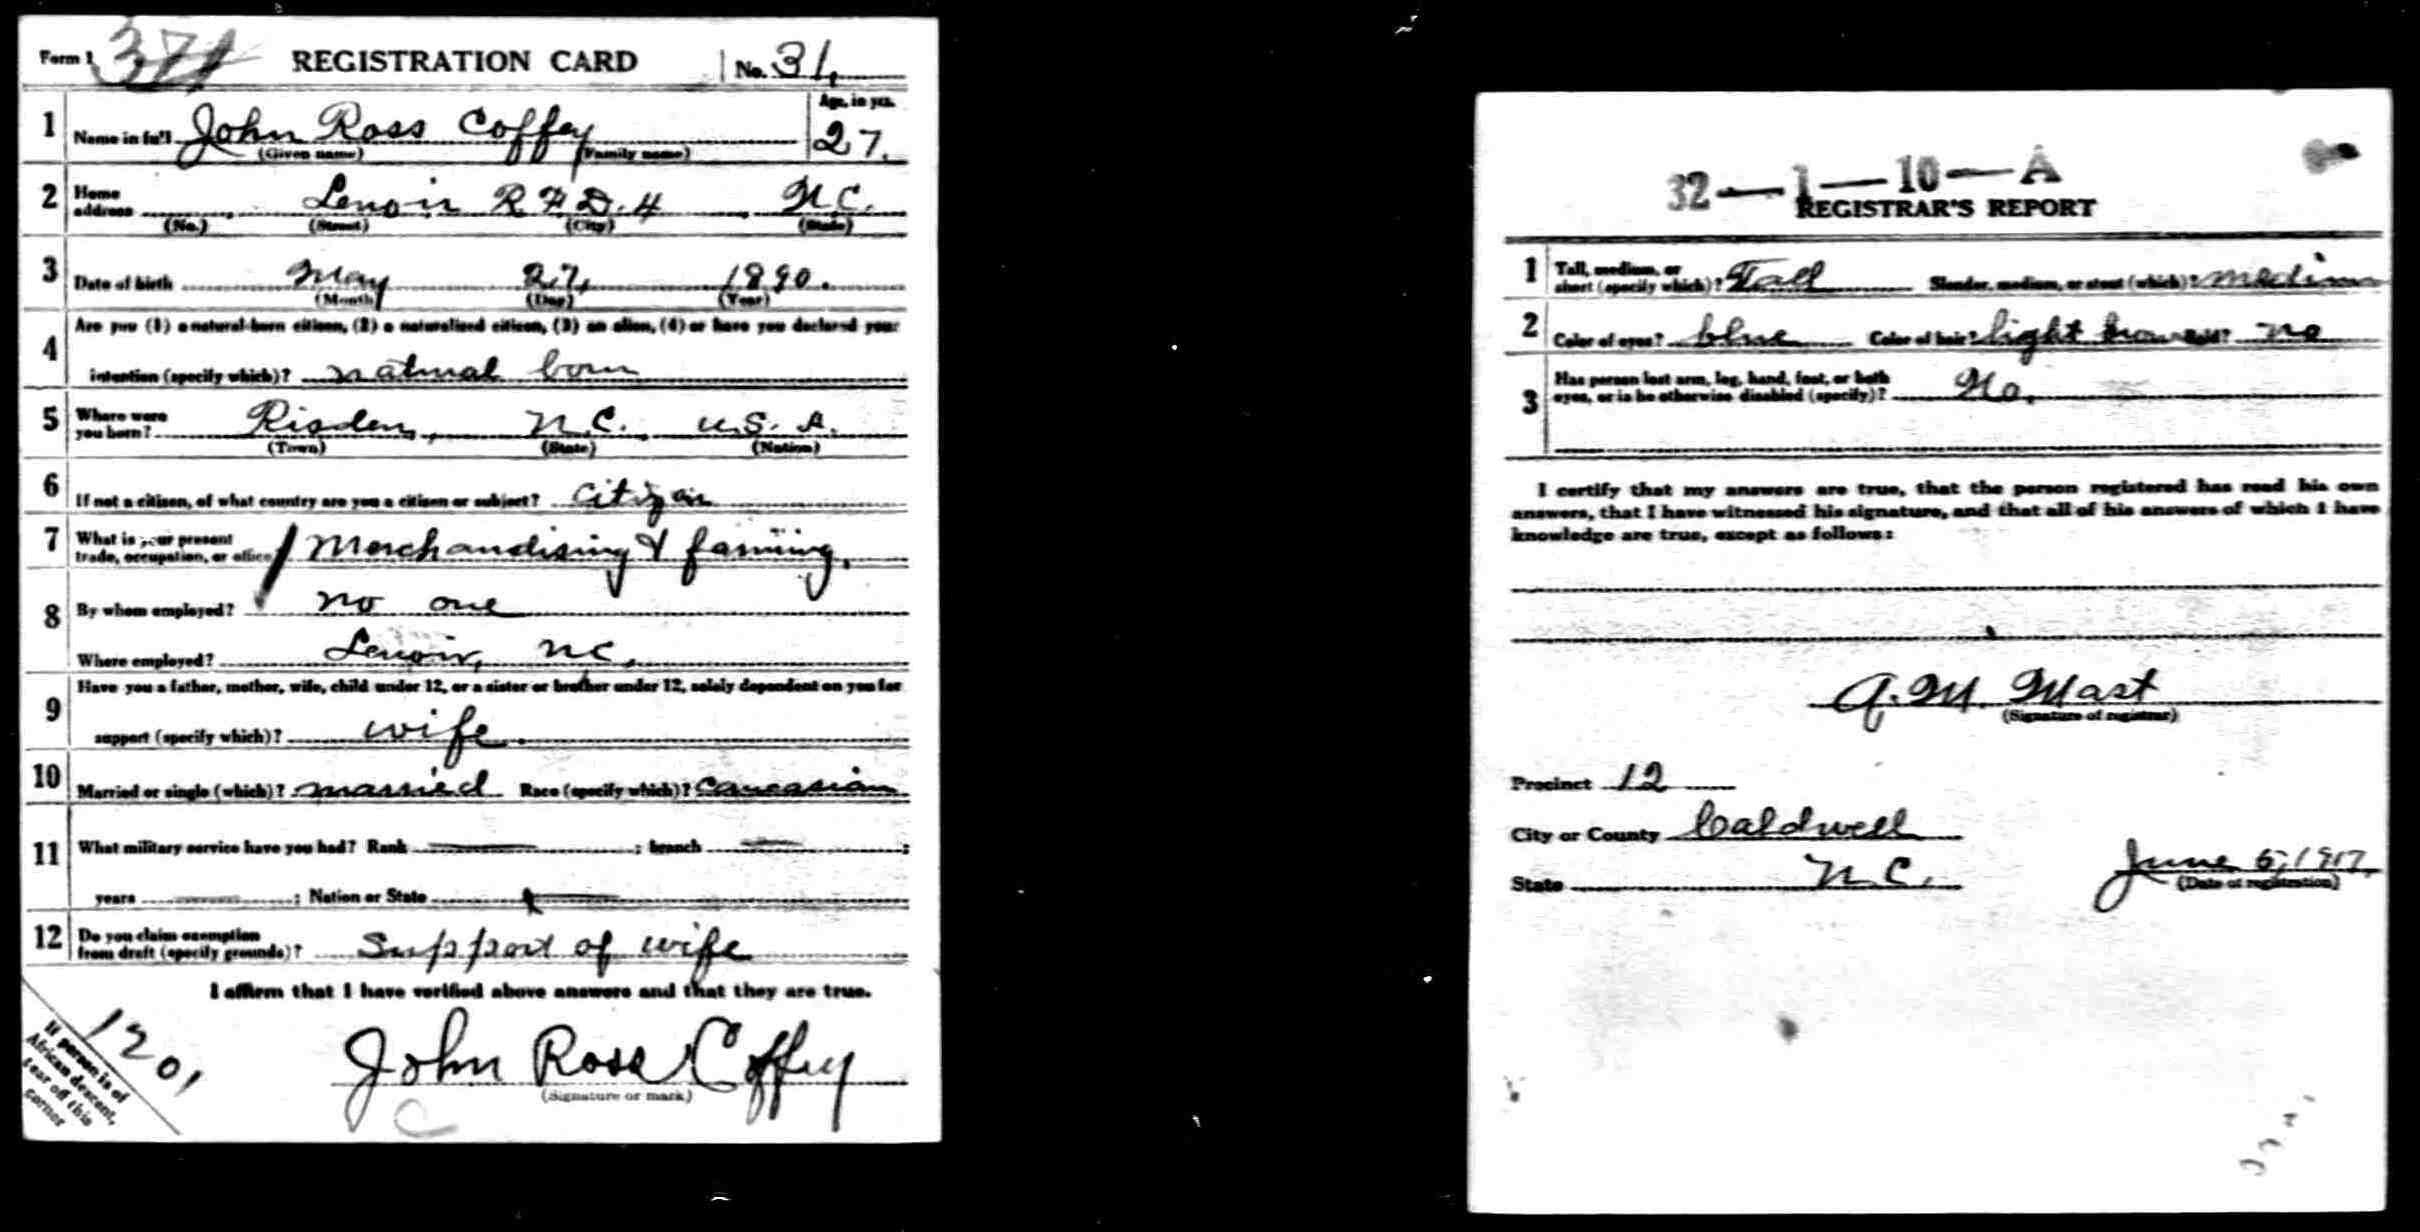 Form 1 371 REGISTRATION CARD No. 31,
Age, in yrs.
1 Name in full John Ross Coffey 27.
(Given name) (Family name)
2 Home address Lenoir R F D. 4 N.C.
(No.) (Street) (City) (State)
3 Date of birth May 27, 1890.
(Month) (Day) (Year)
4 Are you (1) a natural-born citizen, (2) a naturalized citizen, (3) an alien, (4) or have you declared your
intention (specify which)? natural born
5 Where were you born? Risden, N.C. U.S. A.
(Town) (State) (Nation)
6 If not a citizen, of what country are you a citizen or subject? citizen
7 What is your present trade, occupation, or office Merchandising & farming,
8 By whom employed? no one
Where employed? Lenoir, NC.
9 Have you a father, mother, wife, child under 12, or a sister or brother under 12, solely dependent on you for
support (specify which)? wife.
10 Married or single (which)? married Race (specify which)? Caucasian
11 What military service have you had? Rank ; branch ;
years ; Nation or State
12 Do you claim exemption from draft (specify grounds)? Support of wife
I affirm that I have verified above answers and that they are true.
1201
If person is of
African descent,
tear off this
corner
John Ross Coffey
(Signature or mark)
C
32—1—10—A
REGISTRAR'S REPORT
1 Tall, medium, or short (specify which)? Tall Slender, medium, or stout (which)? medium
2 Color of eyes? blue Color of hair? light brown Bald? no
3 Has person lost arm, leg, hand, foot, or both
eyes, or is he otherwise disabled (specify)? No.
I certify that my answers are true, that the person registered has read his own
answers, that I have witnessed his signature, and that all of his answers of which I have
knowledge are true, except as follows:
A. M. Mast
(Signature of registrar)
Precinct 12
City or County Caldwell
State N.C. June 5, 1917,
(Date of registration)